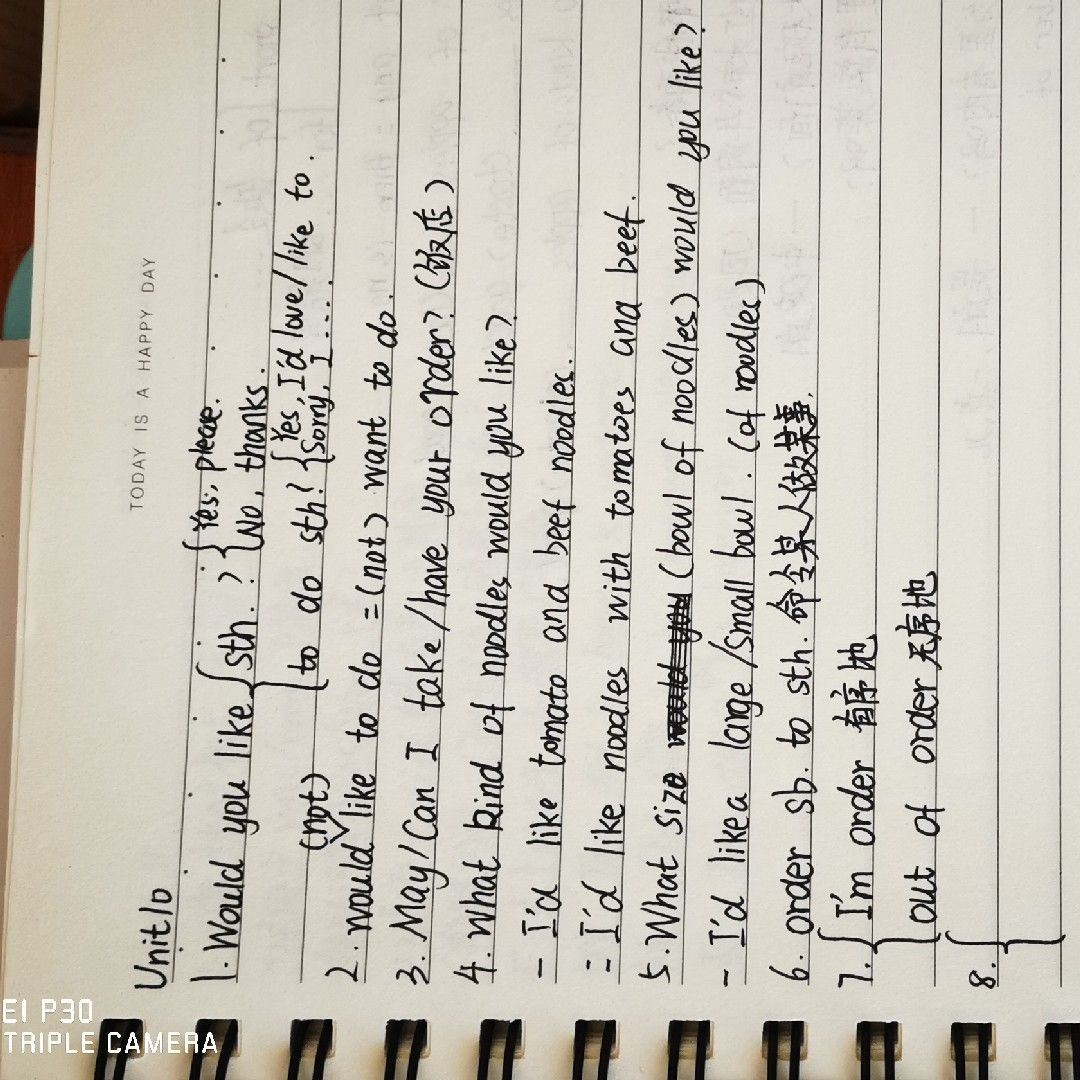 TODAY IS A HAPPY DAY
Unit10
1. Would you like { sth. ? { Yes, please.
No, thanks.
to do sth? { Yes, I'd love/like to.
Sorry, I....
(not)
2. would like to do =(not) want to do.
3. May/Can I take/have your order? (饭店)
4. What kind of noodles would you like?
- I'd like tomato and beef noodles.
= I'd like noodles with tomatoes and beef.
5. What size (bowl of noodles) would you like?
- I'd like a large/small bowl. (of noodles)
6. order sb. to sth. 命令某人做某事.
7. { I'm order 有序地
out of order 无序地
8. {
EI P30
TRIPLE CAMERA